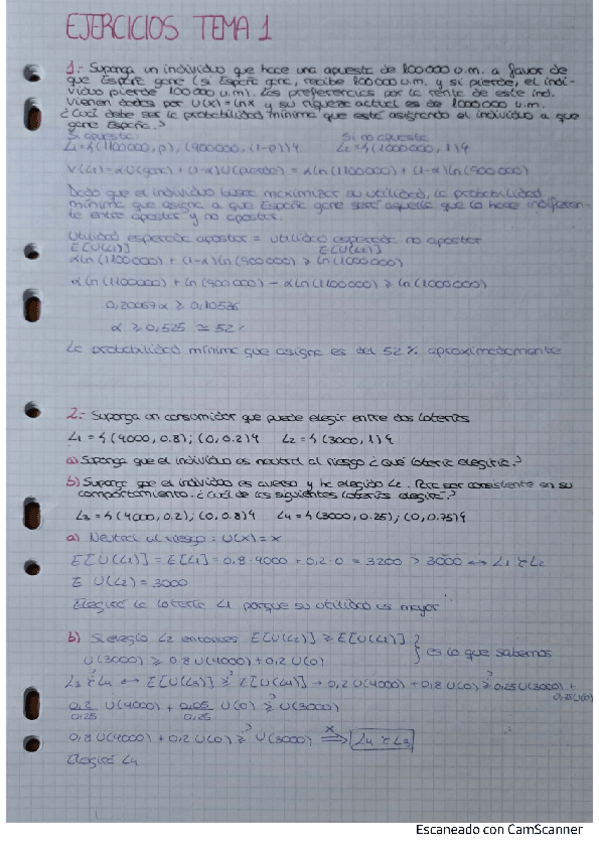 EJERCICIOS TEMA 1
1.- Suponga un individuo que hace una apuesta de 100000 u.m. a favor de
que España gane (si España gana, recibe 100000 u.m. y si pierde, el indi-
viduo pierde 100000 u.m). Las preferencias por la renta de este ind.
vienen dadas por U(x) = lnx y su riqueza actual es de 1000000 u.m.
¿Cuál debe ser la probabilidad mínima que esté asignando el individuo a que
gane España?
Si apuesta: Si no apuesta
L₁ = {(1100000, p), (900000, (1-p))} L₂ = {(1000000, 1)}
V(L₁) = αU(gane) + (1-α)U(pierde) = αln(1100000) + (1-α)ln(900000)
Dado que el individuo busca maximizar su utilidad, la probabilidad
mínima que asigna a que España gane será aquella que lo hace indiferen-
te entre apostar y no apostar.
Utilidad esperada apostar = utilidad esperada no apostar
E[U(L₁)] E[U(L₂)]
αln(1100000) + (1-α)ln(900000) ≥ ln(1000000)
αln(1100000) + ln(900000) - αln(1100000) ≥ ln(1000000)
0,20067α ≥ 0,10536
α ≥ 0,525 ≃ 52%
La probabilidad mínima que asigna es del 52% aproximadamente
2.- Suponga un consumidor que puede elegir entre dos loterías
L₁ = {(4000, 0.8); (0, 0.2)} L₂ = {(3000, 1)}
a) Suponga que el individuo es neutral al riesgo ¿qué lotería elegiría?
b) Suponga que el individuo es averso y ha elegido L₂. Para ser consistente en su
comportamiento. ¿Cuál de las siguientes loterías elegirá?
L₃ = {(4000, 0.2); (0, 0.8)} L₄ = {(3000, 0.25); (0, 0.75)}
a) Neutral al riesgo: U(x) = x
E[U(L₁)] = E[L₁] = 0,8·4000 + 0,2·0 = 3200 > 3000 ↔ L₁ ≻ L₂
E U(L₂) = 3000
Elegirá la lotería L₁ porque su utilidad es mayor
b) Si elegió L₂ entonces E[U(L₂)] ≥ E[U(L₁)] } es lo que sabemos
U(3000) ≥ 0.8U(4000) + 0.2U(0)
L₃ ≿ L₄ ↔ E[U(L₃)] ≥? E[U(L₄)] → 0,2U(4000) + 0,8U(0) ≥? 0,25U(3000) +
0,75U(0)
0,2/0,25 U(4000) + 0,05/0,25 U(0) ≥? U(3000)
0,8U(4000) + 0,2U(0) ≥? U(3000) ⇒ L₄ ≿ L₃
Elegirá L₄
Escaneado con CamScanner